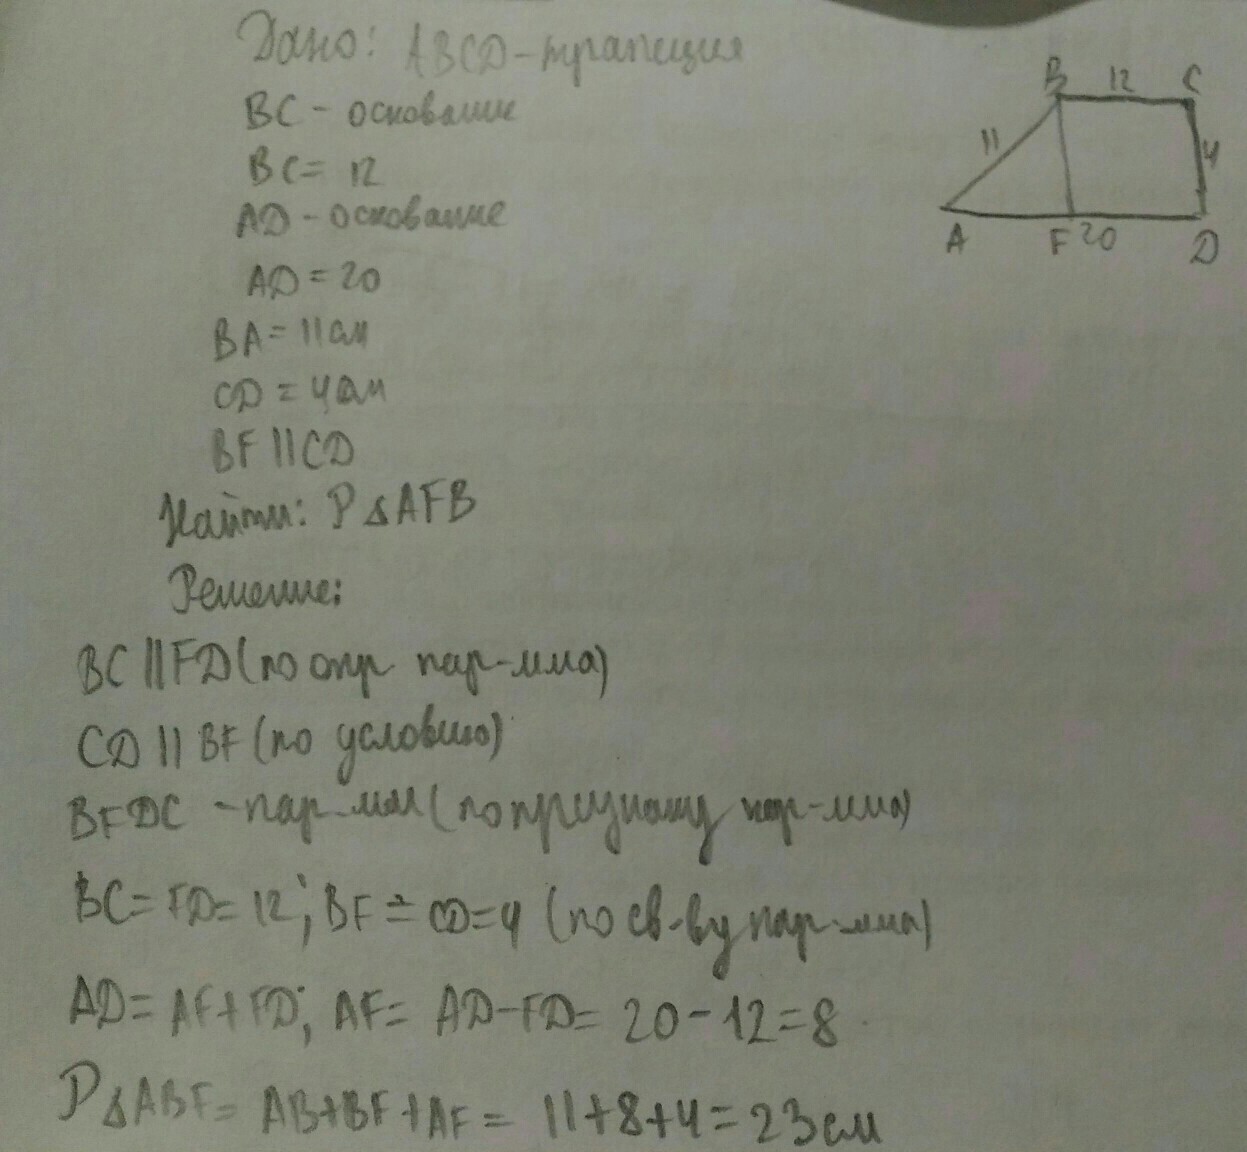 Дано: ABCD-трапеция
BC - основание
BC = 12
AD - основание
AD = 20
BA = 11 см
CD = 4 см
BF || CD
Найти: P△AFB
Решение:
BC || FD (по опр пар-мма)
CD || BF (по условию)
BFDC - пар-мм (по признаку пар-мма)
BC = FD = 12; BF = CD = 4 (по св-ву пар-мма)
AD = AF + FD; AF = AD - FD = 20 - 12 = 8
P△ABF = AB + BF + AF = 11 + 8 + 4 = 23 см
B 12 C
11
4
A F 20 D